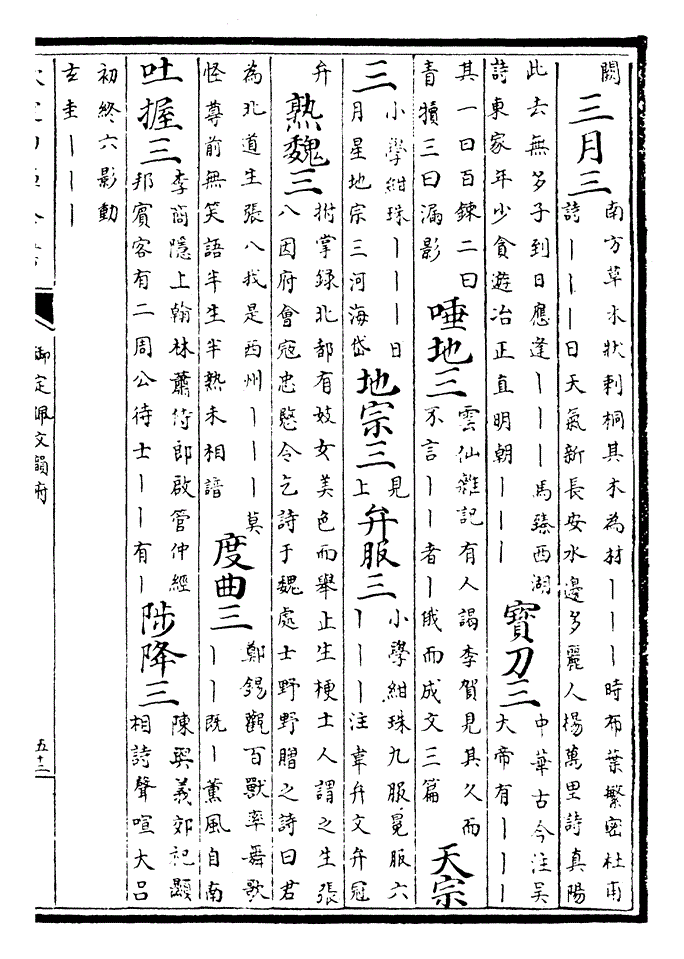 闕
三月三
南方草木狀刺桐其木為材丨丨丨時布葉繁密杜甫
詩丨丨丨日天氣新長安水邊多麗人楊萬里詩真陽
此去無多子到日應逢丨丨丨馬臻西湖
詩東家年少貪遊冶正直明朝丨丨丨
寶刀三
中華古今注吴
大帝有丨丨丨
其一曰百鍊二曰
青犢三曰漏影
唾地三
雲仙雜記有人謁李賀見其久而
不言丨丨者丨俄而成文三篇
天宗
三
小學紺珠丨丨丨日
月星地宗三河海岱
地宗三
見
上
弁服三
小學紺珠九服冕服六
丨丨丨注韋弁文弁冠
弁
熟魏三
拊掌録北都有妓女美色而舉止生梗士人謂之生張
八因府會寇忠愍令乞詩于魏處士野野贈之詩曰君
為北道生張八我是西州丨丨丨莫
怪尊前無笑語半生半熟未相諳
度曲三
鄭錫觀百獸率舞歌
丨丨既丨薫風自南
吐握三
李商隱上翰林蕭侍郎啟管仲經
邦賓客有二周公待士丨丨有丨
陟降三
陳與義郊祀顯
相詩聲喧大吕
初終六影動
玄圭丨丨丨
御定佩文韻府
五十二